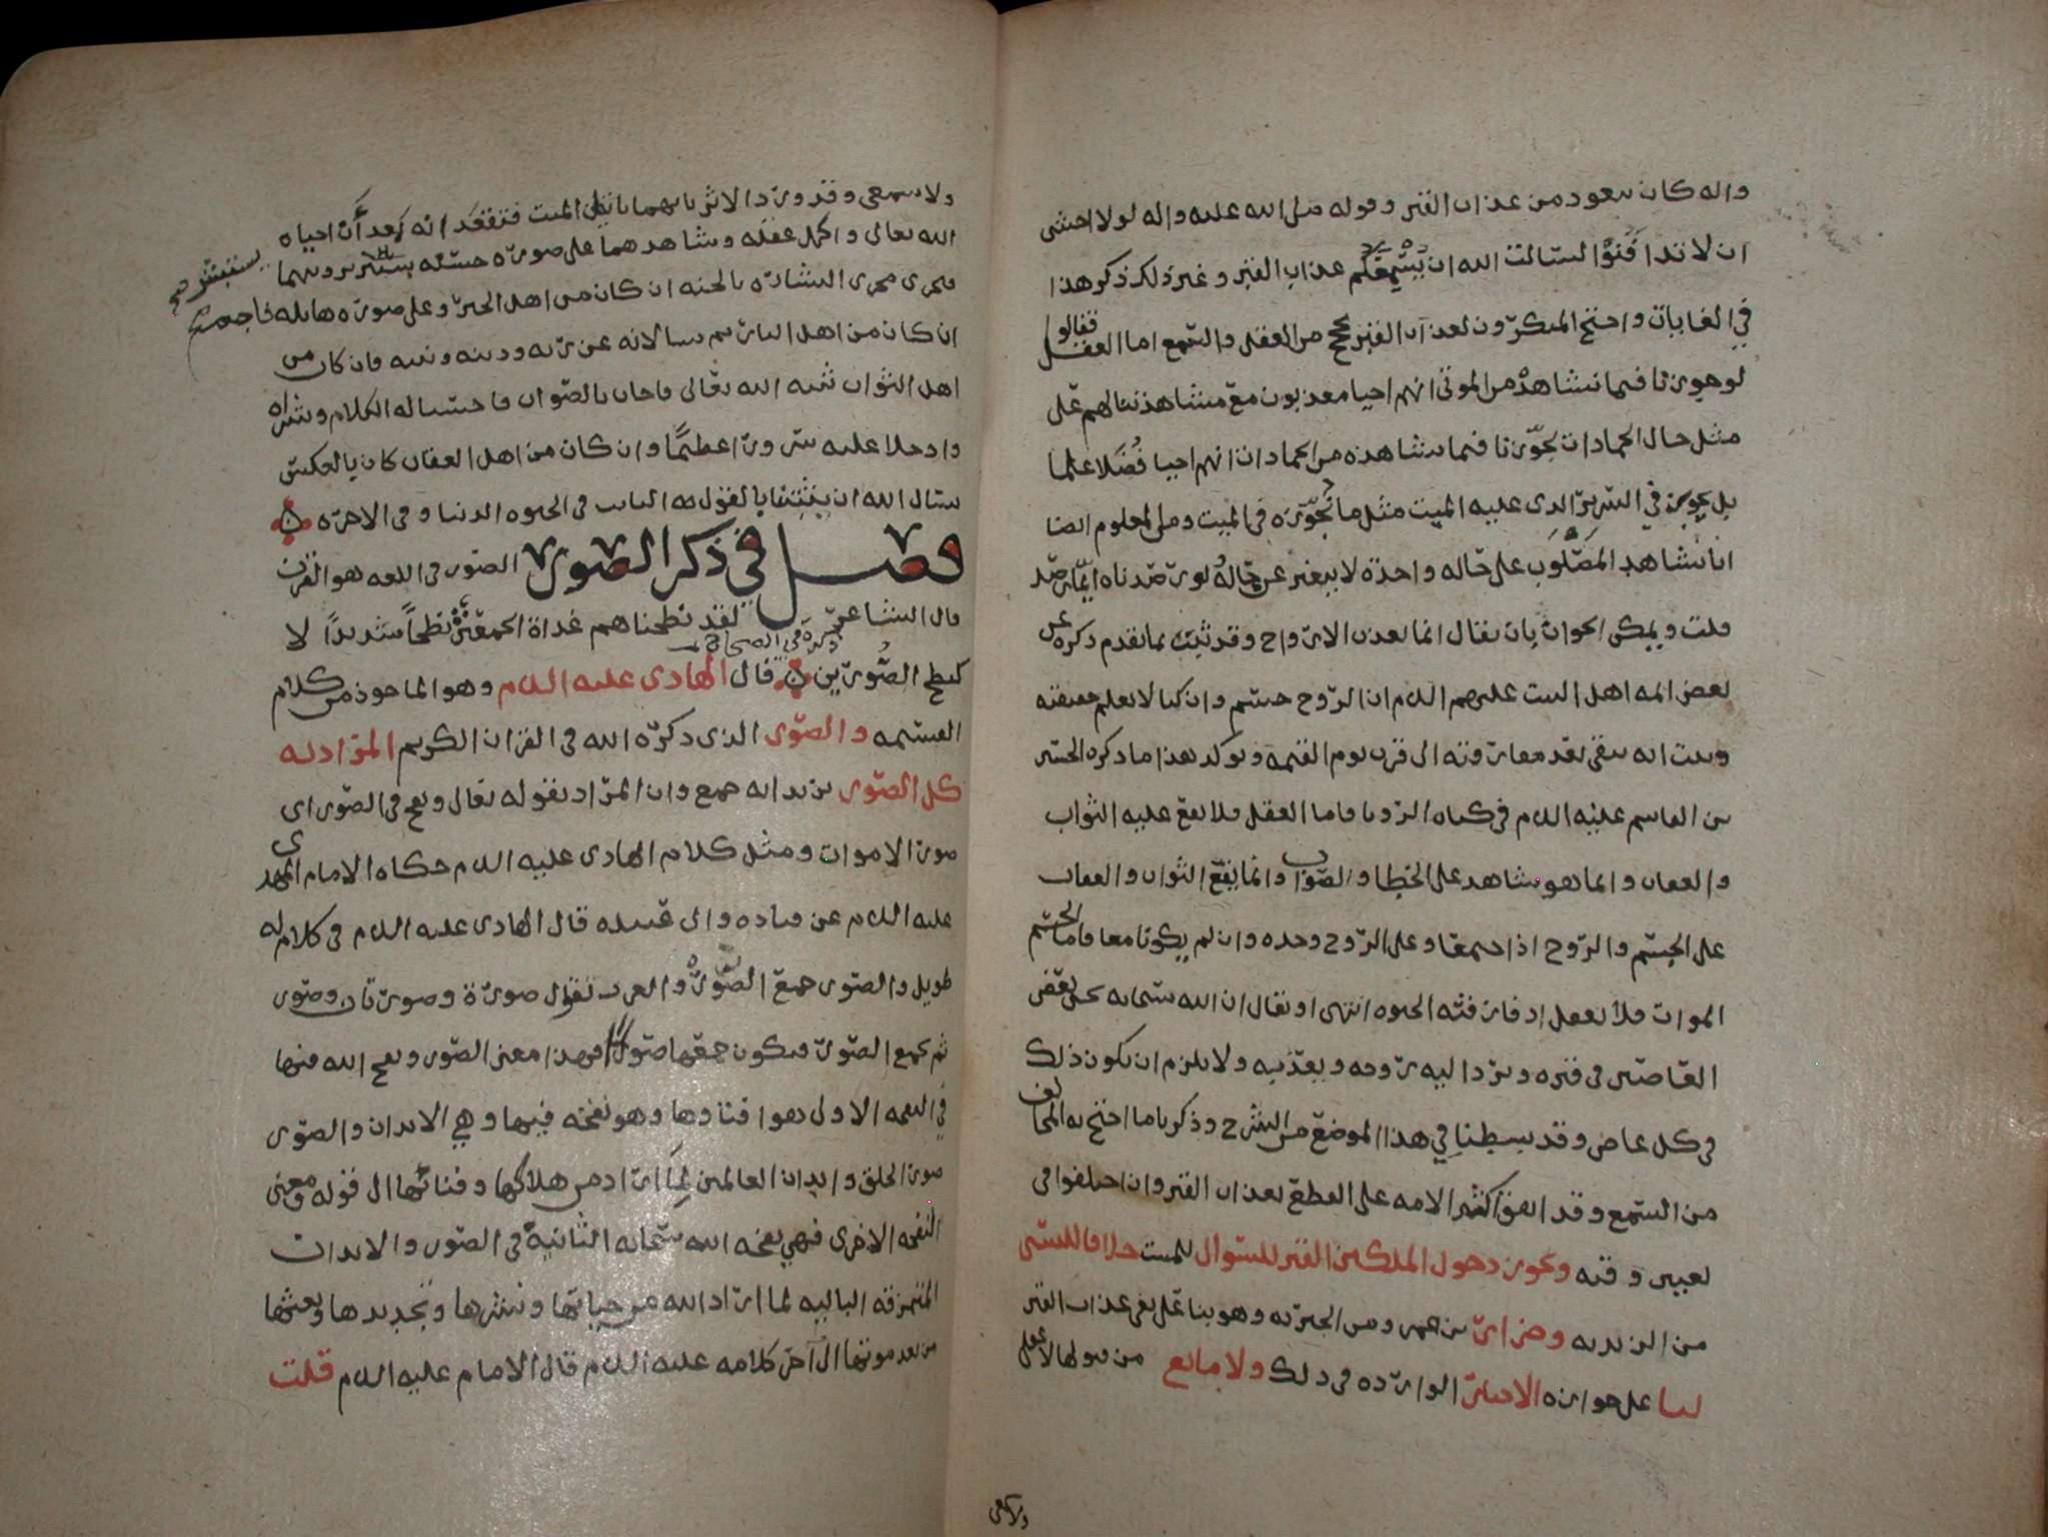 واله كان يتعوذ من عذاب القبر وقوله صلى الله عليه واله لولا اخشى
ان لا تدافنوا لسالت الله ان يسمعكم عذاب القبر وغير ذلك ذكر هذا
في الغايات واحتج المنكرون لعذاب القبر بحجج من العقل والسمع اما العقل فقالوا
لو جوزنا فيما نشاهد من الموتى انهم احيا معذبون مع مشاهدتنا لهم على
مثل حال الجمادات لجوزنا فيما نشاهده من الجمادات انهم احيا فضلا علما
بل يجوز في السرير الذي عليه الميت مثل ما نجوزه في الميت ومن المعلوم ايضا
انا نشاهد المصلوب على حاله واحدة لا يتغير عن حاله لو رصدناه ايما رصد
قلت ويمكن الجواب بان يقال انما يعذب الارواح وقد ثبت بما تقدم ذكره عن
بعض ائمه اهل البيت عليهم السلم ان الروح جسم وان كنا لا نعلم حقيقته
وثبت انه يبقى بعد مفارقته الى قرب يوم القيمه ويوكد هذا ما ذكره الحسين
بن القاسم عليه السلم في كتاب الرويا فاما العقل فلا يقع عليه الثواب
والعقاب وانما هو شاهد على الخطا والصواب وانما يقع الثواب والعقاب
على الجسم والروح اذا اجتمعا وعلى الروح وحده وان لم يكونا معا فاما الجسم
الموات فلا يعقل اذ فارقته الحيوه انتهى او يقال ان الله سبحانه يحيي بعض
العاصين في قبره ويرد اليه روحه ويعذبه ولا يلزم ان يكون ذلك
في كل عاص وقد بسطنا في هذا الموضع من الشرح وذكرنا ما احتج به المخالف
من السمع وقد اتفق اكثر الامه على القطع بعذاب القبر وان اختلفوا في
تعيين وقته ويجوز دخول الملكين القبر للسوال للميت خلافا للبستي
من الزيديه وضرار بن عمرو ومن الجبريه وهو بناء على نفي عذاب القبر
لنا على جوازه الاخبار الوارده في ذلك ولا مانع من قبولها لا عقلي
ولا سمعي
ولا سمعي وقد ورد الاثر بانهما ياتيان الميت فتفقد انه بعد ان احياه
الله تعالى واكمل عقله ويشاهدهما على صورة حسنه يستبشر برويتهما
يستبشر صح
فيجري مجرى البشارة بالجنه ان كان من اهل الخير وعلى صورة هايله
ان كان من اهل النار ثم يسالانه عن ربه ودينه ونبيه فان كان من
اهل الثواب ثبته الله تعالى فاجاب بالصواب فاحسنا له الكلام وبشراه
وادخلا عليه سرورا عظيما وان كان من اهل العقاب كان بالعكس
نسال الله ان يثبتنا بالقول الثابت في الحيوه الدنيا وفي الاخرة
فصل في ذكر الصور الصور في اللغه هو القرن
قال الشاعر لقد نطحناهم غداة الجمعين نطحا شديدا لا
ذكره في الصحاح
كنطح الصورين قال الهادي عليه السلم وهو الماخوذ من كلام
القسم والصور الذي ذكره الله في القران الكريم المراد به
كل الصور يريد انه جمع وان المراد بقوله تعالى ونفخ في الصور اي
صور الاموات ومثل كلام الهادي عليه السلم حكاه الامام المهدي
عليه السلم عن قتاده وابي عبيده قال الهادي عليه السلم في كلام له
طويل والصور جمع الصور والعرب تقول صورة وصورتان وصور
ثم يجمع الصور فيكون جمعها صور فهذا معنى الصور ونفخ الله فيها
في النفخه الاولى هو افناوها وهو نفخه فيها وهي الابدان والصور
صور الخلق وابدان العالمين لما اراد من هلاكها وفنائها الى قوله ومعنى
النفخه الاخرى فهي نفخه الله سبحانه الثانية في الصور والابدان
المتمزقه الباليه لما اراد الله من حياتها ونشرها وتجديدها وبعثها
من بعد موتها الى آخر كلامه عليه السلم قال الامام عليه السلم قلت